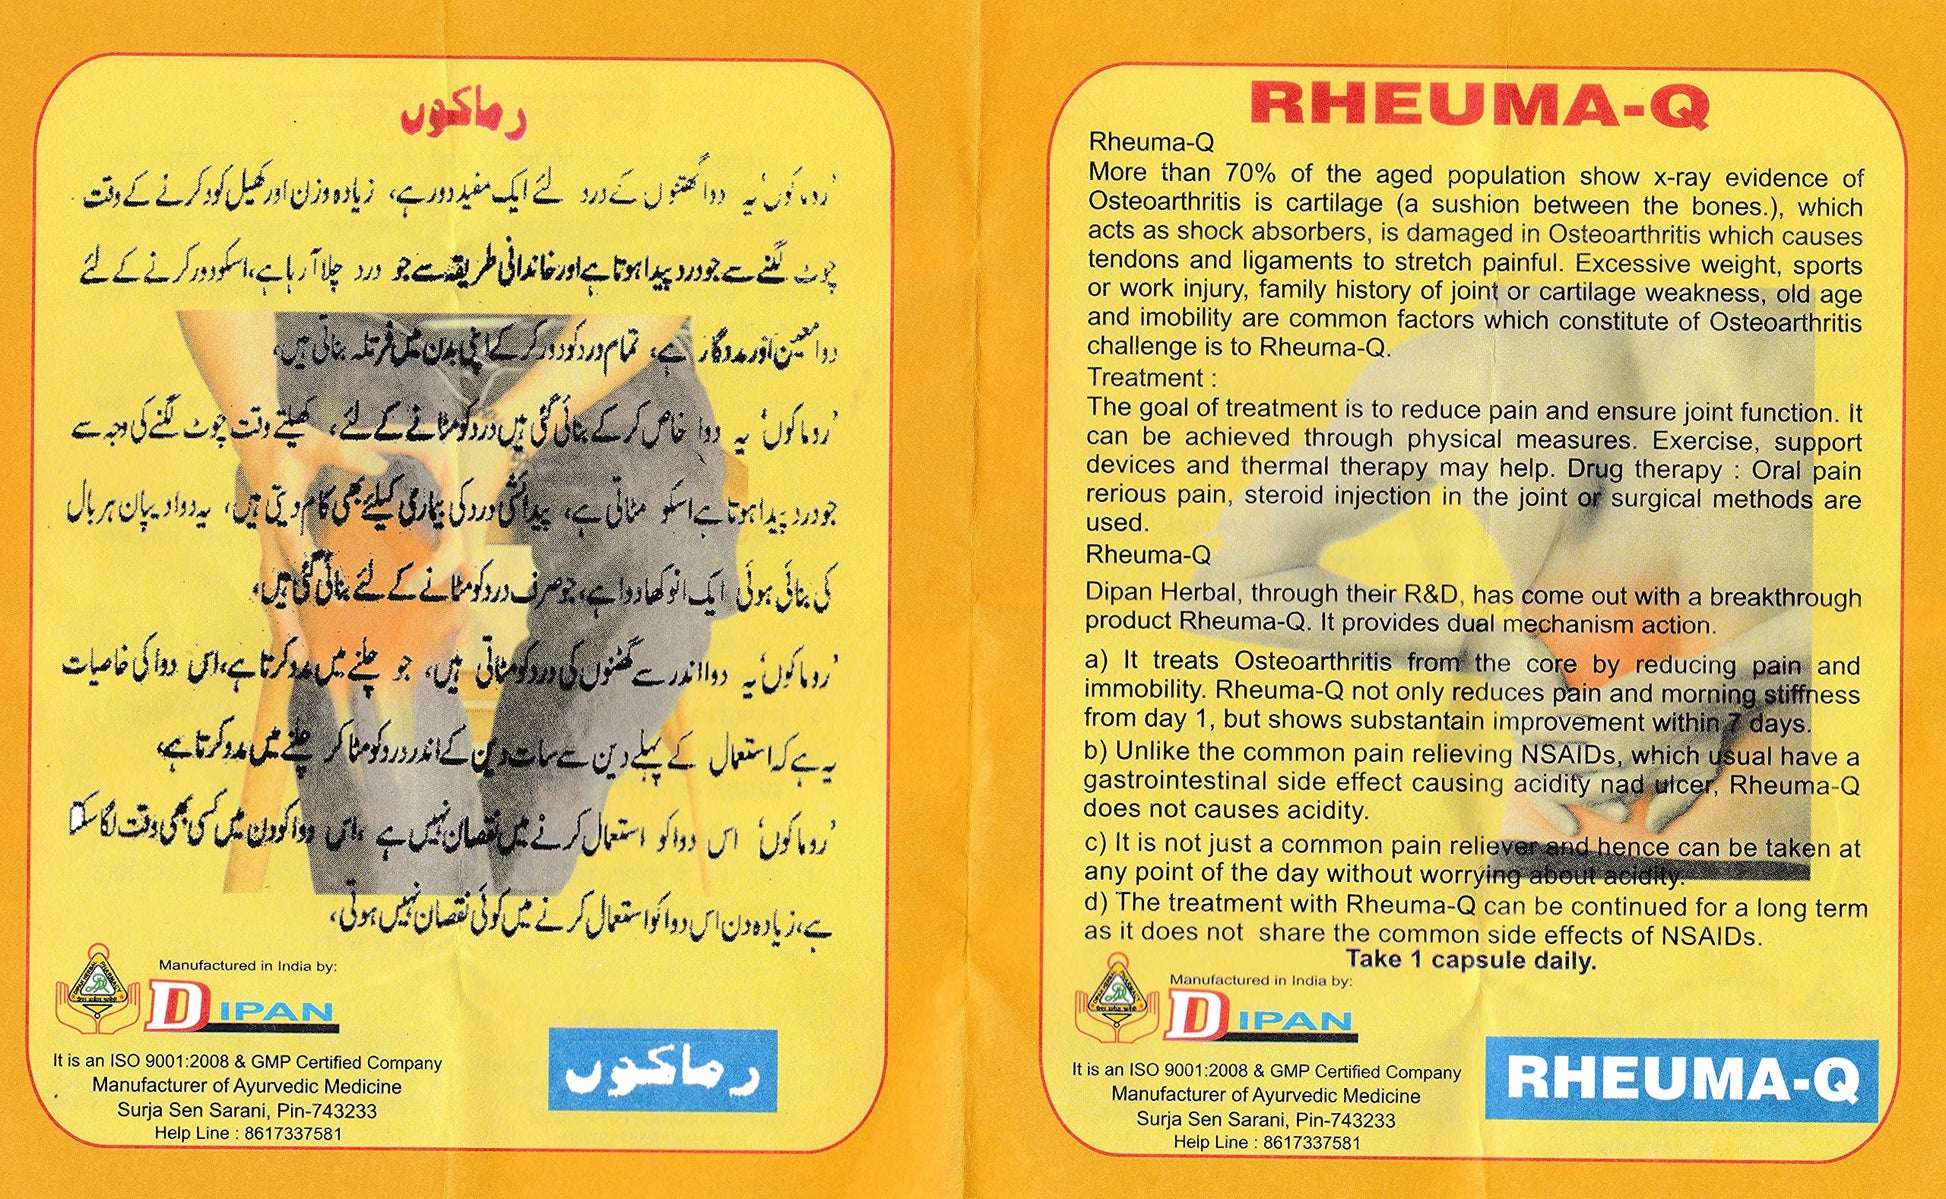 رماکوں
'روماکوں' یہ دوا گھٹنوں کے درد لئے ایک مفید دور ہے، زیادہ وزن اور کھیل کود کرنے کے وقت
چوٹ لگنے سے جو درد پیدا ہوتا ہے اور خاندانی طریقہ سے جو درد چلا آرہا ہے، اسکو دور کرنے کے لئے
دوا معین اور مددگار ہے، تمام درد کو دور کر کے بدن میں بناتی ہیں،
'روماکوں' یہ دوا خاص کر کے بنائی گئی ہیں درد کو مٹانے کے لئے، کھیلتے وقت چوٹ لگنے کی وجہ سے
جو درد پیدا ہوتا ہے اسکو مٹاتی ہے، پیدائشی درد کی بیماری کیلئے بھی کام دیتی ہیں، یہ دوا دیپان ہربال
کی بنائی ہوئی ایک انوکھا دوا ہے، جو صرف درد کو مٹانے کے لئے بنائی گئی ہیں،
'روماکوں' یہ دوا اندر سے گھٹنوں کی درد کو مٹاتی ہیں، جو چلنے میں مدد کرتا ہے، اس دوا کی خاصیات
یہ ہے کہ استعمال کے پہلے دین سے سات دین کے اندر درد کو مٹا کر چلنے میں مدد کرتا ہے،
'روماکوں' اس دوا کو استعمال کرنے میں نقصان نہیں ہے، اس دوا کو دن میں کسی بھی وقت لگا سکتا
ہے، زیادہ دن اس دوا کو استعمال کرنے میں کوئی نقصان نہیں ہوتی،
Manufactured in India by:
DIPAN
It is an ISO 9001:2008 & GMP Certified Company
Manufacturer of Ayurvedic Medicine
Surja Sen Sarani, Pin-743233
Help Line : 8617337581
رماکوں
RHEUMA-Q
Rheuma-Q
More than 70% of the aged population show x-ray evidence of
Osteoarthritis is cartilage (a sushion between the bones.), which
acts as shock absorbers, is damaged in Osteoarthritis which causes
tendons and ligaments to stretch painful. Excessive weight, sports
or work injury, family history of joint or cartilage weakness, old age
and imobility are common factors which constitute of Osteoarthritis
challenge is to Rheuma-Q.
Treatment :
The goal of treatment is to reduce pain and ensure joint function. It
can be achieved through physical measures. Exercise, support
devices and thermal therapy may help. Drug therapy : Oral pain
rerious pain, steroid injection in the joint or surgical methods are
used.
Rheuma-Q
Dipan Herbal, through their R&D, has come out with a breakthrough
product Rheuma-Q. It provides dual mechanism action.
a) It treats Osteoarthritis from the core by reducing pain and
immobility. Rheuma-Q not only reduces pain and morning stiffness
from day 1, but shows substantain improvement within 7 days.
b) Unlike the common pain relieving NSAIDs, which usual have a
gastrointestinal side effect causing acidity nad ulcer, Rheuma-Q
does not causes acidity.
c) It is not just a common pain reliever and hence can be taken at
any point of the day without worrying about acidity.
d) The treatment with Rheuma-Q can be continued for a long term
as it does not share the common side effects of NSAIDs.
Take 1 capsule daily.
Manufactured in India by:
DIPAN
It is an ISO 9001:2008 & GMP Certified Company
Manufacturer of Ayurvedic Medicine
Surja Sen Sarani, Pin-743233
Help Line : 8617337581
RHEUMA-Q